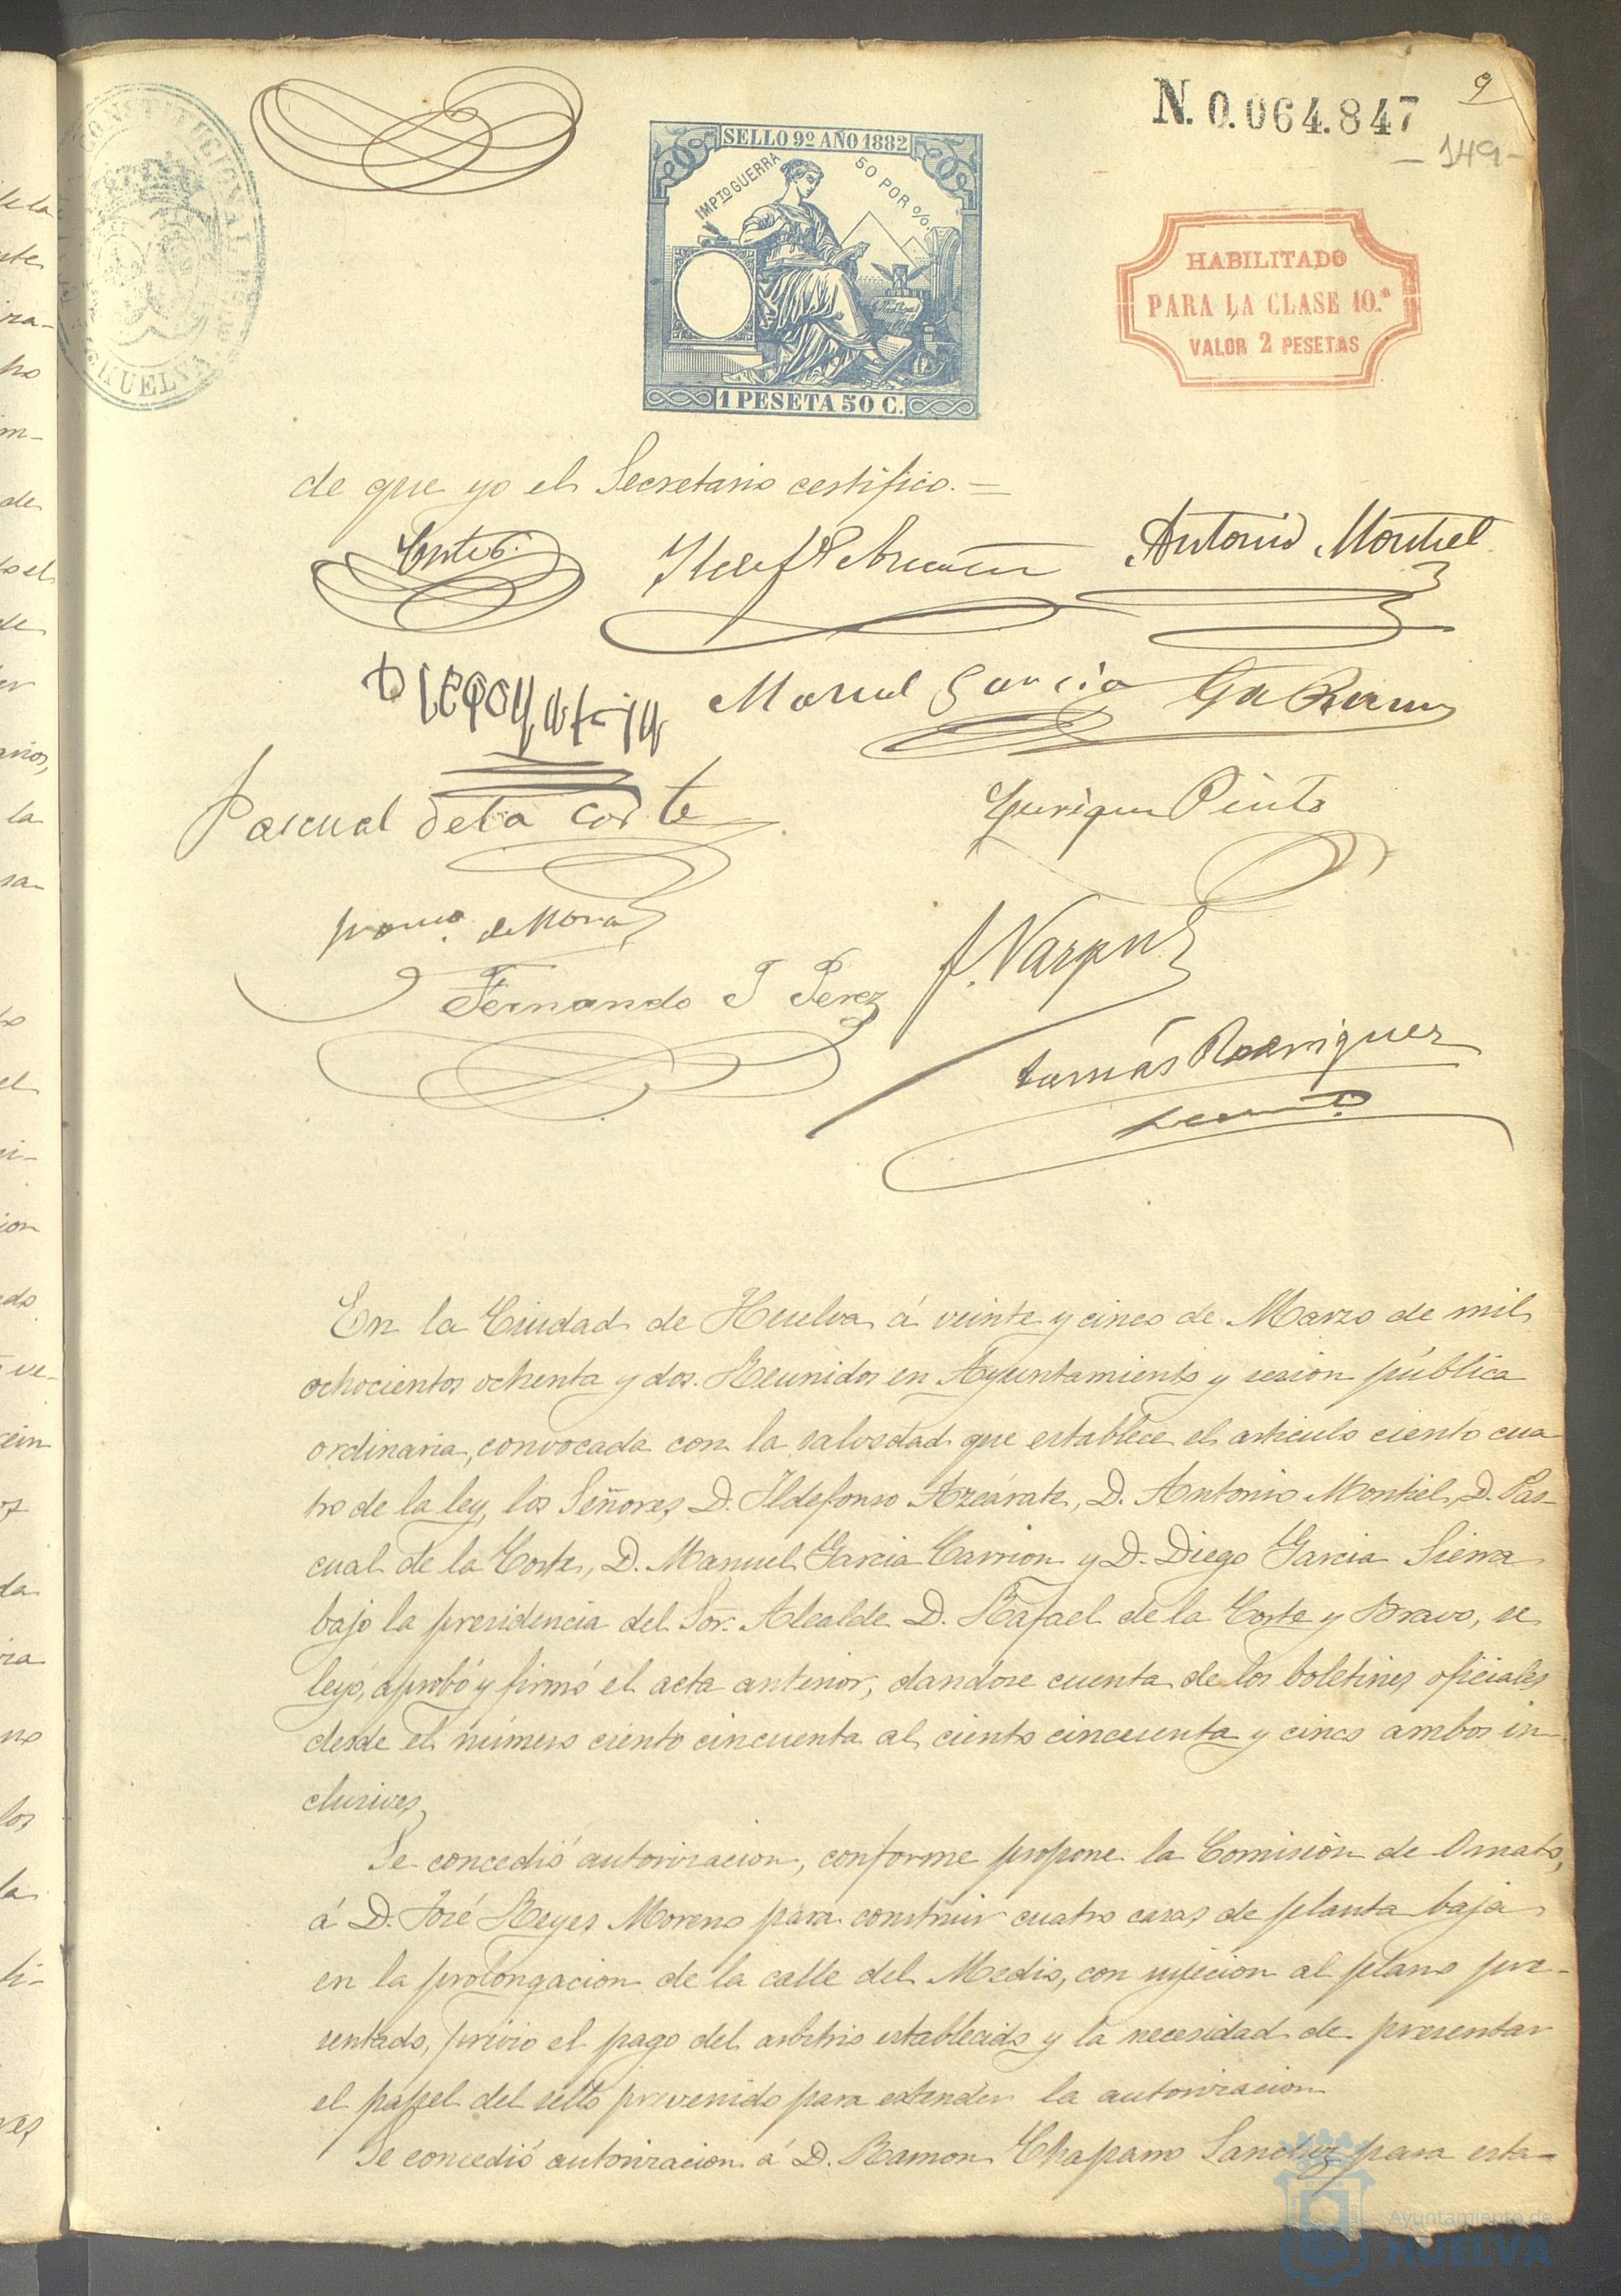 N. 0.064.847
9
-149-
CONSTITUCIONAL
HUELVA
SELLO 9º AÑO 1882
IMPTO GUERRA 50 POR %
1 PESETA 50 C.
HABILITADO
PARA LA CLASE 10.ª
VALOR 2 PESETAS
de que yo el Secretario certifico.=
Corte
Antonio Montiel
Diego Garcia
Manuel Garcia
Pascual de la Corte
Enrique Pinto
de Mora
Fernando J Perez
Tomás Rodriguez
En la Ciudad de Huelva á veinte y cinco de Marzo de mil
ochocientos ochenta y dos. Reunidos en Ayuntamiento y sesion pública
ordinaria, convocada con la salvedad que establece el articulo ciento cua
tro de la ley, los Señores D. Ildefonso Azcárate, D. Antonio Montiel, D. Pas-
cual de la Corte, D. Manuel Garcia Carrion y D. Diego Garcia Sierra
bajo la presidencia del Sor. Alcalde D. Rafael de la Corte y Bravo, se
leyó, aprobó y firmó el acta anterior, dandose cuenta de los boletines oficiales
desde el número ciento cincuenta al ciento cincuenta y cinco ambos in-
clusives,
Se concedió autorizacion, conforme propone la Comision de Ornato,
á D. José Reyes Moreno para construir cuatro casas de planta baja
en la prolongacion de la calle del Medio, con sujecion al plano pre-
sentado, previo el pago del arbitrio establecido y la necesidad de presentar
el papel del sello prevenido para extender la autorizacion
Se concedió autorizacion á D. Ramon Chaparro Sanchez para esta-
Ayuntamiento de
HUELVA